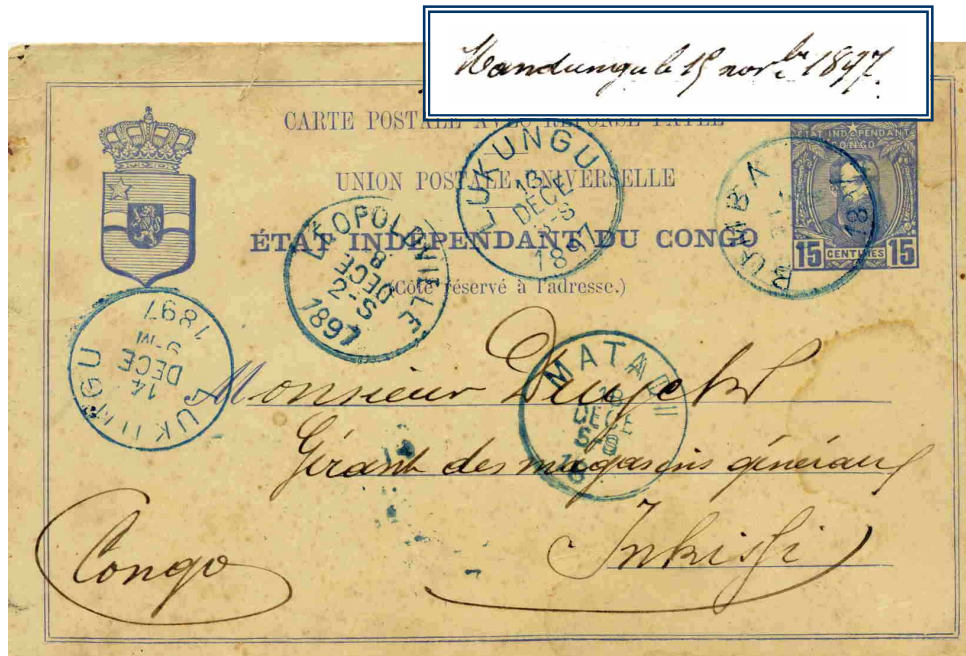 le 15 nov. 1897.
CARTE POSTALE AVEC RÉPONSE PAYÉE
UNION POSTALE UNIVERSELLE
ÉTAT INDÉPENDANT DU CONGO
(Côté réservé à l'adresse.)
ÉTAT INDÉPENDANT
CONGO
15 CENTIMES 15
LUKUNGU
13
DECE
1897
BUMBA
LÉOPOLDVILLE
8
DECE
2-S
1897
LUKUNGU
14
DECE
9-M
1897
MATADI
18
DECE
Monsieur
Gérant des magasins généraux
Inkisfi
Congo